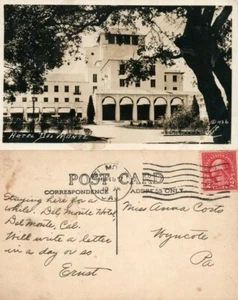 HOTEL DEL MONTE
POST CARD
CORRESPONDENCE
ADDRESS ONLY
Staying here for a
while. Del Monte Hotel,
Del Monte, Cal.
Will write a letter
in a day or so.
Ernst
Miss Anna Costo
Wyncote
Pa